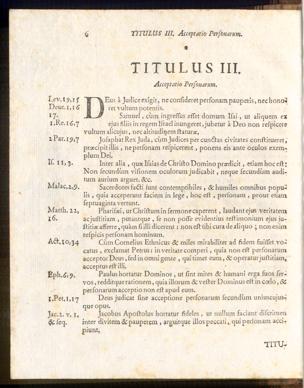 6 TITULUS III. Acceptatio Personarum.
TITULUS III.
Acceptatio Personarum.
Lev. 19. 15 DEus à Judice exigit, ne consideret personam pauperis, nec hono-
Deut. 1. 16 ret vultum potentis.
17. Samuel, cum ingressus esset domum Isai, ut aliquem ex
1. Re. 16. 7 ejus filiis in regem Israel inungeret, jubetur à Deo non respicere
vultum alicujus, nec altitudinem staturæ.
2 Par. 19, 7 Josaphat Rex Juda, cum Judices per cunctas civitates constitueret,
præcipit illis, ne personam respicerent, ponens eis ante oculos exem-
plum Dei.
If. 11, 3. Inter alia, quæ Isaias de Christo Domino prædicit, etiam hoc est;
Non secundùm visionem oculorum judicabit, neque secundùm audi-
tum aurium arguet. &c.
Malac. 2. 9. Sacerdotes facti sunt contemptibiles, & humiles omnibus popu-
lis, quia acceperunt faciem in lege, hoc est, personam, prout etiam
septuaginta vertunt.
Matth. 22, Pharisæi, ut Christum in sermone caperent, laudant ejus veritatem
16. ac justitiam, putantque, se non posse evidentius testimonium ejus ju-
stitiæ afferre, quàm si illi dicerent: non est tibi cura de aliquo; non enim
respicis personam hominum.
Act. 10. 34 Cùm Cornelius Ethnicus & miles mirabiliter ad fidem fuisset vo-
catus, exclamat Petrus: in veritate comperi, quia non est personarum
acceptor Deus, sed in omni gente, qui timet eum, & operatur justitiam,
acceptus est illi.
Eph. 6. 9. Paulus hortatur Dominos, ut sint mites & humani erga suos ser-
vos, redditque rationem, quia illorum & vester Dominus est in cœlo, &
personarum acceptio non est apud eum.
1. Pet. 1. 17 Deus judicat sine acceptione personarum secundùm uniuscujus-
que opus.
Jac. 2. v. 1. Jacobus Apostolus hortatur fideles, ut nullum faciant discrimen
& seq. inter divitem & pauperem, arguitque illos peccati, qui personam acci-
piunt.
TITU-